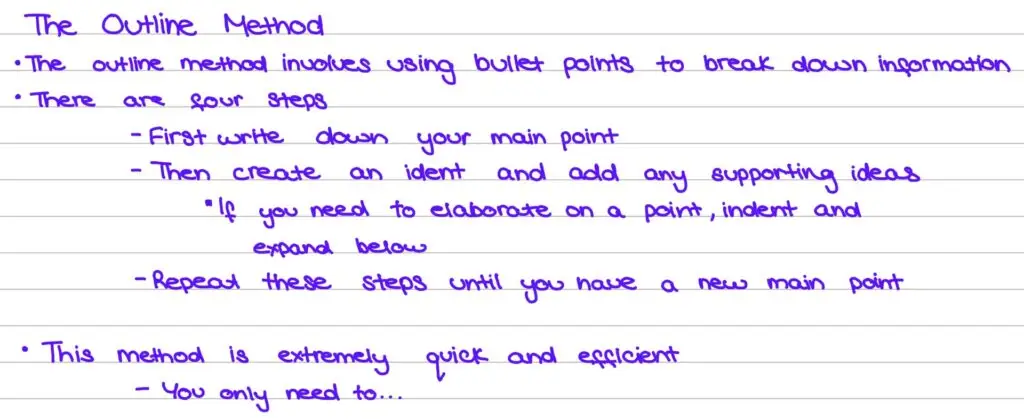 The Outline Method
• The outline method involves using bullet points to break down information
• There are four steps
- First write down your main point
- Then create an ident and add any supporting ideas
• If you need to elaborate on a point, indent and
expand below
- Repeat these steps until you have a new main point
• This method is extremely quick and efficient
- You only need to...